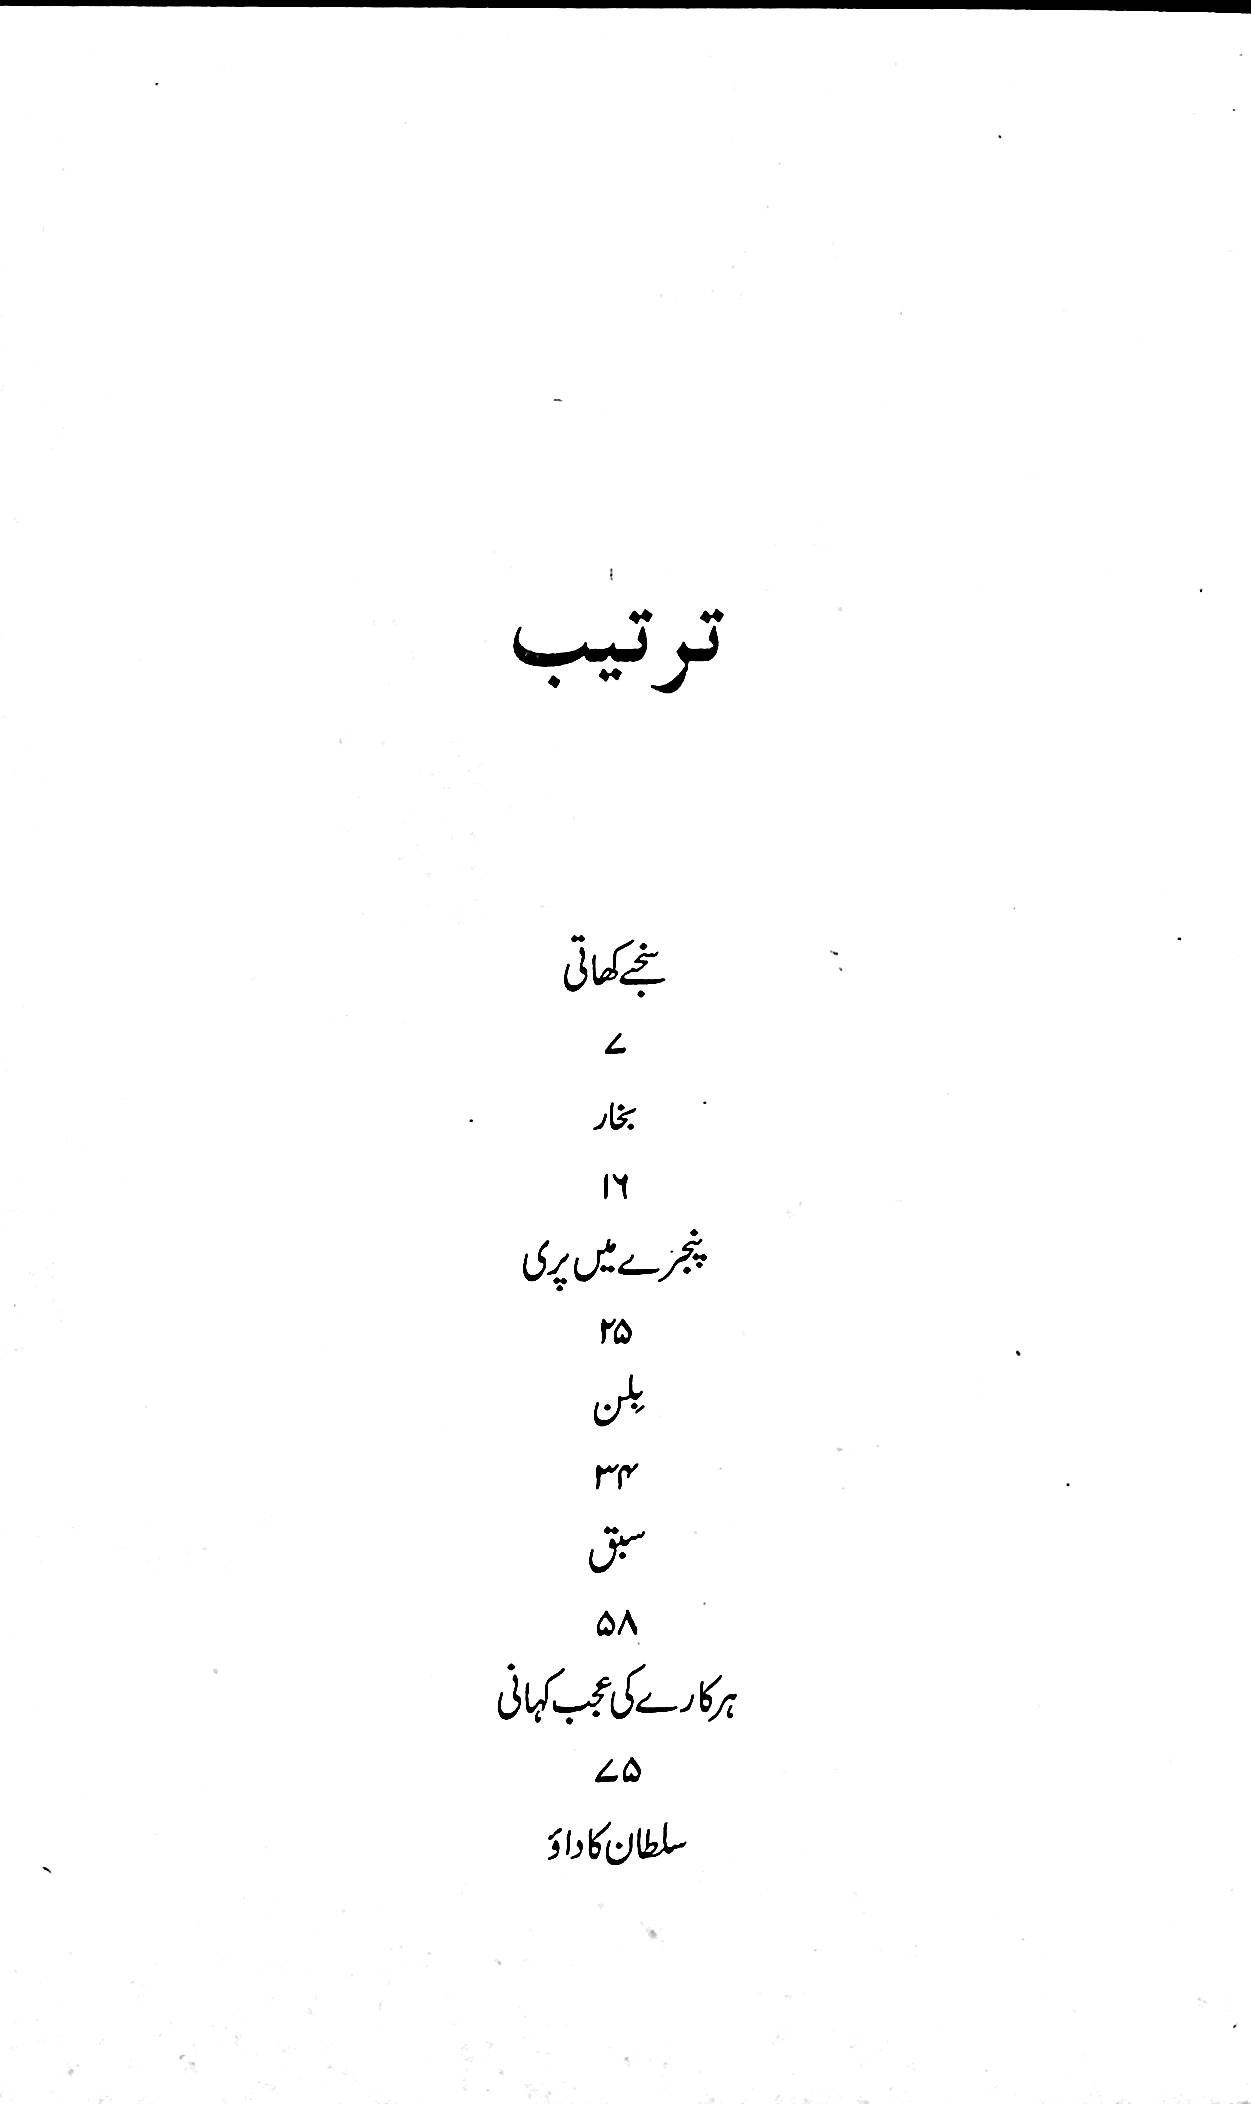 ترتیب
سنجے کھاتی
۷
بخار
۱۶
پنجرے میں پری
۲۵
بِلن
۳۴
سبق
۵۸
ہرکارے کی عجب کہانی
۷۵
سلطان کا داؤ